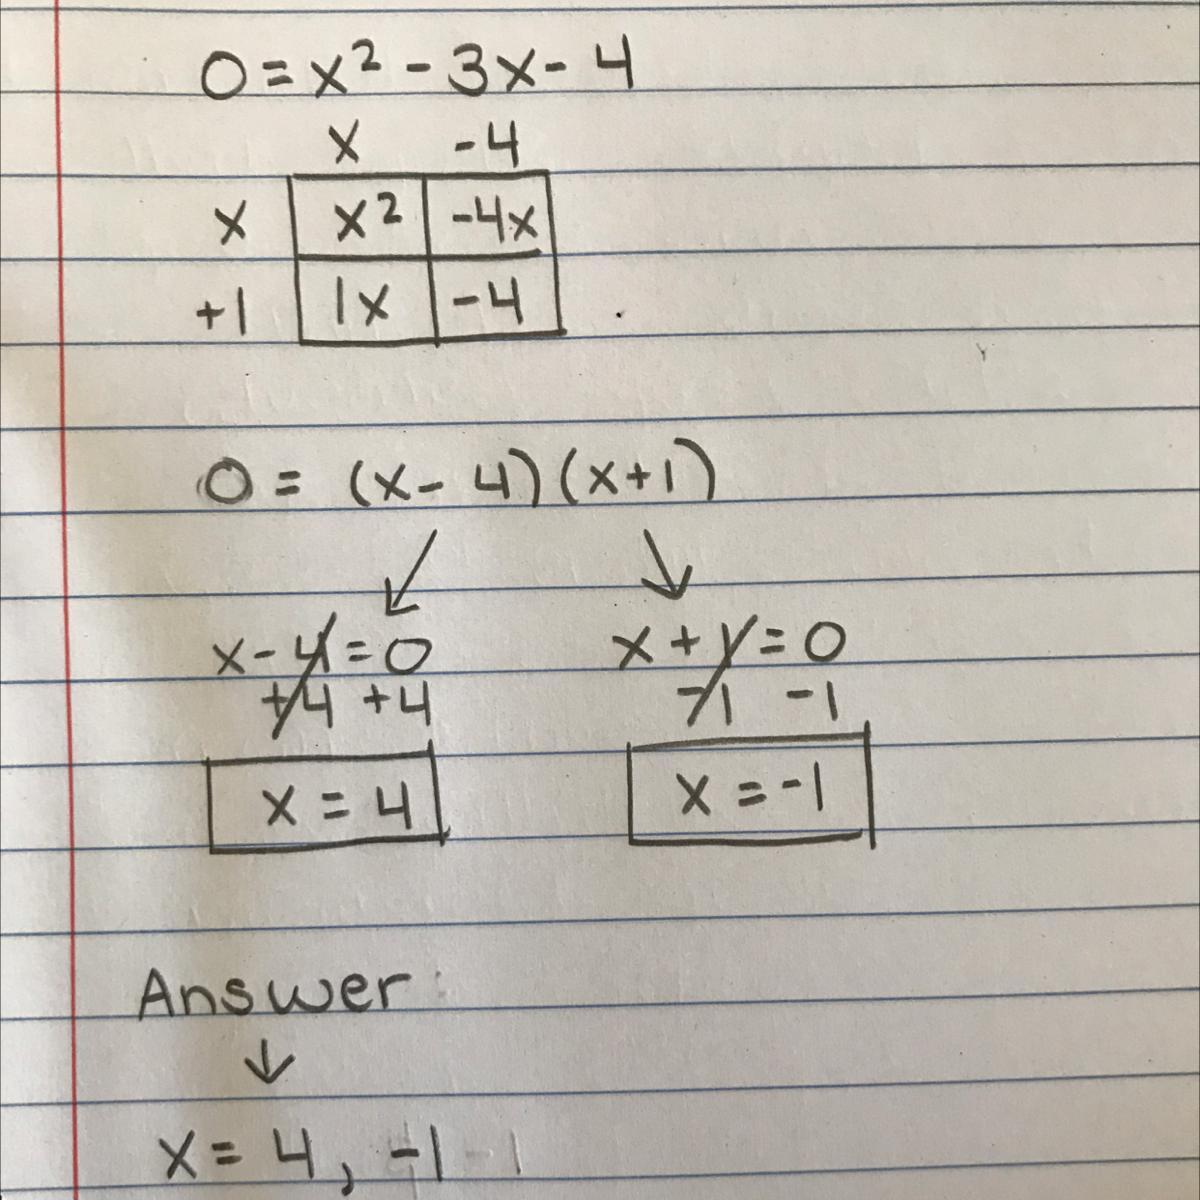 0 = x² - 3x - 4
x -4
x x² -4x
+1 1x -4
0 = (x - 4)(x+1)
x - 4 = 0 x + 1 = 0
+4 +4 -1 -1
x = 4 x = -1
Answer
x = 4, -1